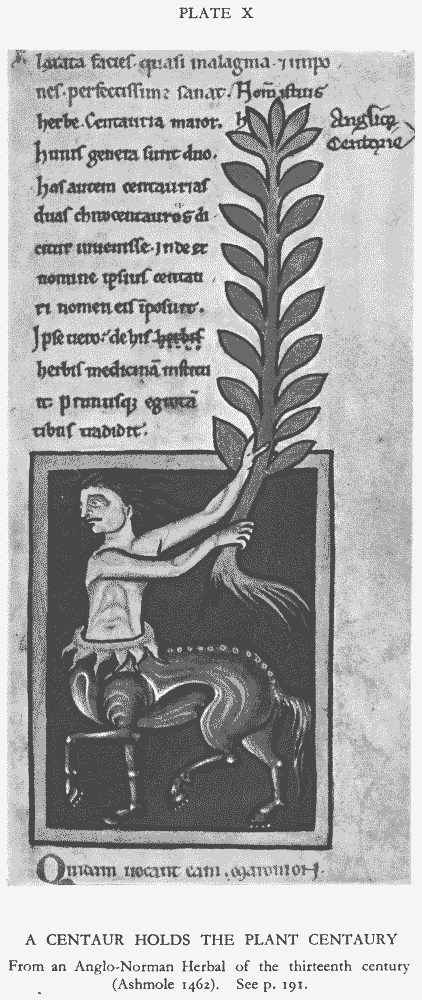 PLATE X
lauata facies quasi malagma ⁊ impo
nes perfectissime sanat. Nom istius
herbe. Centauria maior. h
huius genera sunt duo.
has autem centaurias
duas chirocentauros di
citur inuenisse. Inde et
nomine ipsius centau
ri nomen eis īposuit.
Ipse uero de his herbis
herbis medicinā institu
it
tibus tradidit.
Anglice
Centorie
Quidam uocant eam
A CENTAUR HOLDS THE PLANT CENTAURY
From an Anglo-Norman Herbal of the thirteenth century
(Ashmole 1462). See p. 191.